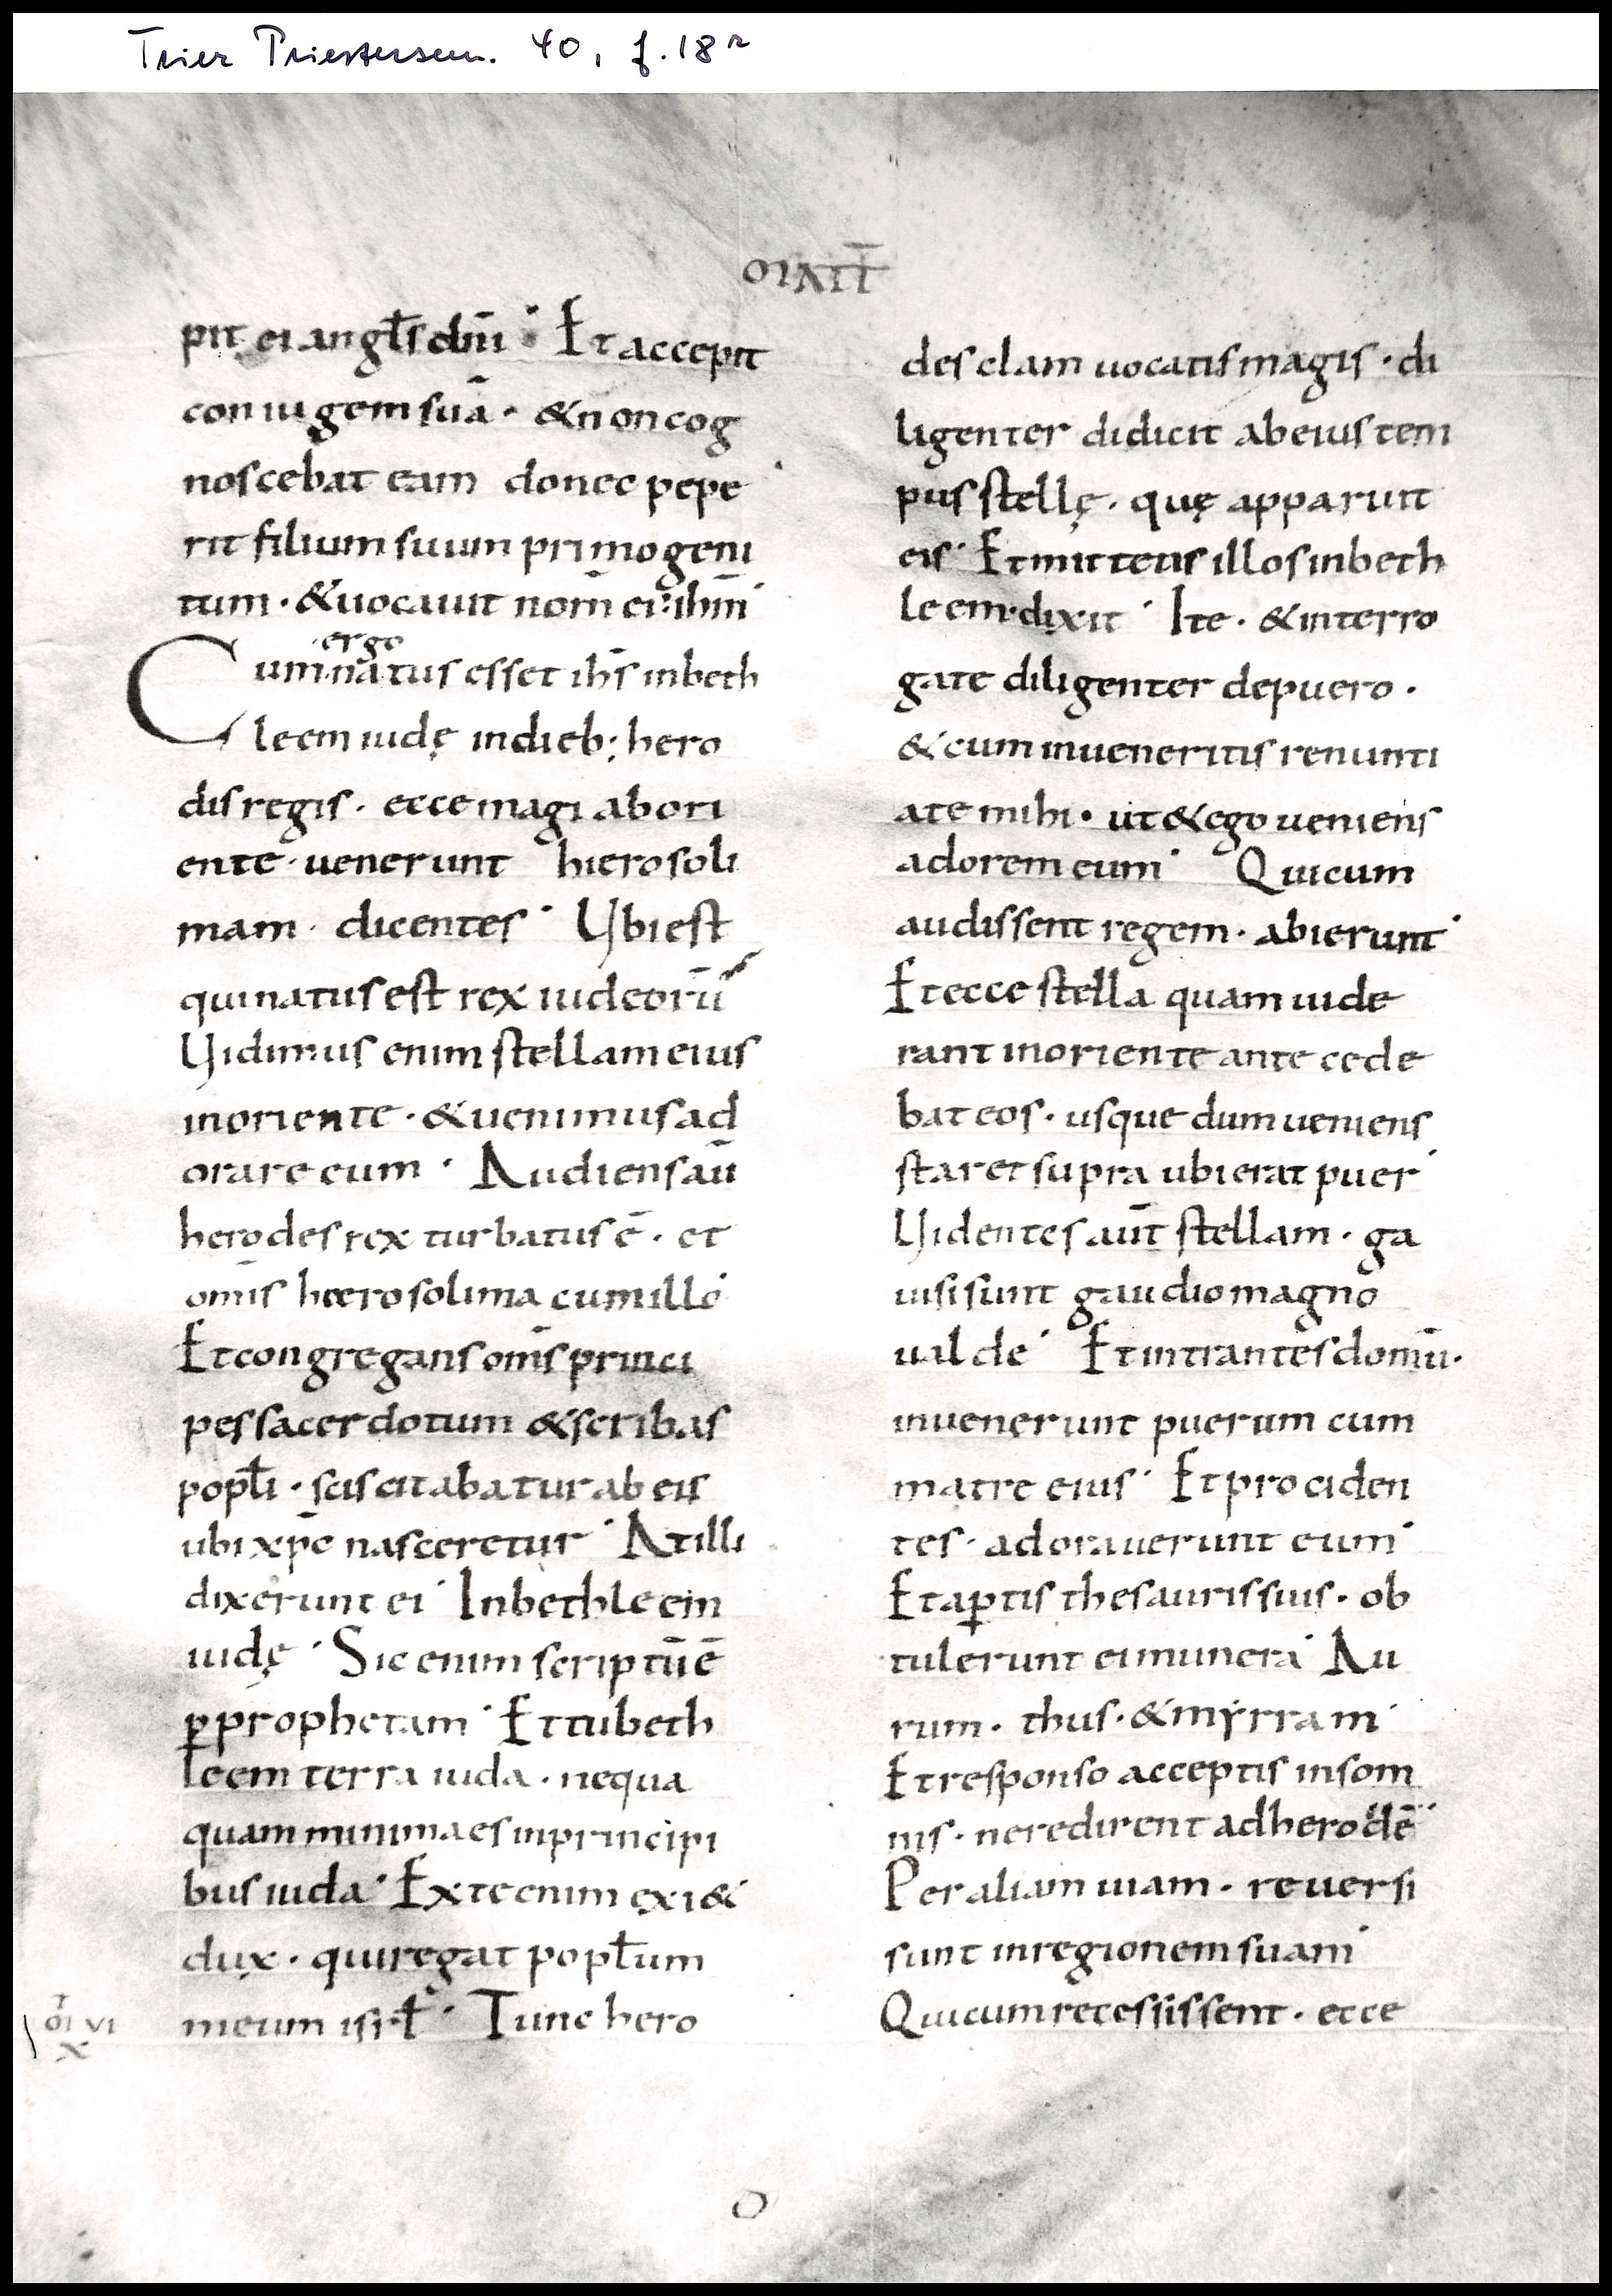 Trier Priestersem. 40, f. 18r
pit ei angłs dñi Et accepit
coniugem suā · & non cog
noscebat eam donec pepe
rit filium suum primogeni
tum · & uocauit nom̄ ei: ihm̄
ergo
Cum natus esset ihs̄ in beth
leem iudę in dieb; hero
dis regis · ecce magi ab ori
ente · uenerunt hierosoli
mam · dicentes Ubi est
qui natus est rex iudeorū
Uidimus enim stellam eius
in oriente · & uenimus ad
orare eum · Audiens aū
herodes rex turbatus ē · et
om̄is hierosolima cum illo
Et congregans om̄s princi
pes sacerdotum & scribas
popłi · sciscitabatur ab eis
ubi xp̄c nasceretur At illi
dixerunt ei In bethleem
iudę Sic enim scriptū ē
ꝑ prophetam Et tu beth
leem terra iuda · nequa
quam minima es in principi
bus iuda Ex te enim exi&
dux · qui regat popłum
meum isrł · Tunc hero
des clam uocatis magis · di
ligenter didicit ab eius tem
pus stellę · quę apparuit
eis Et mittens illos in beth
leem · dixit Ite · & interro
gate diligenter de puero ·
& cum inueneritis renunti
ate mihi · ut & ego ueniens
adorem eum Qui cum
audissent regem · abierunt
Et ecce stella quam uide
rant in oriente antecede
bat eos · usque dum ueniens
staret supra ubi erat puer
Uidentes aūt stellam · ga
uisi sunt gaudio magno
ualde Et intrantes domū ·
inuenerunt puerum cum
matre eius Et prociden
tes · adorauerunt eum
Et aꝑtis thesauris suis · ob
tulerunt ei munera Au
rum · thus · & myrram
Et responso acceptis in som
nis · ne redirent ad herodē
Per aliam uiam · reuersi
sunt in regionem suam
Qui cum recessissent · ecce
VI
X